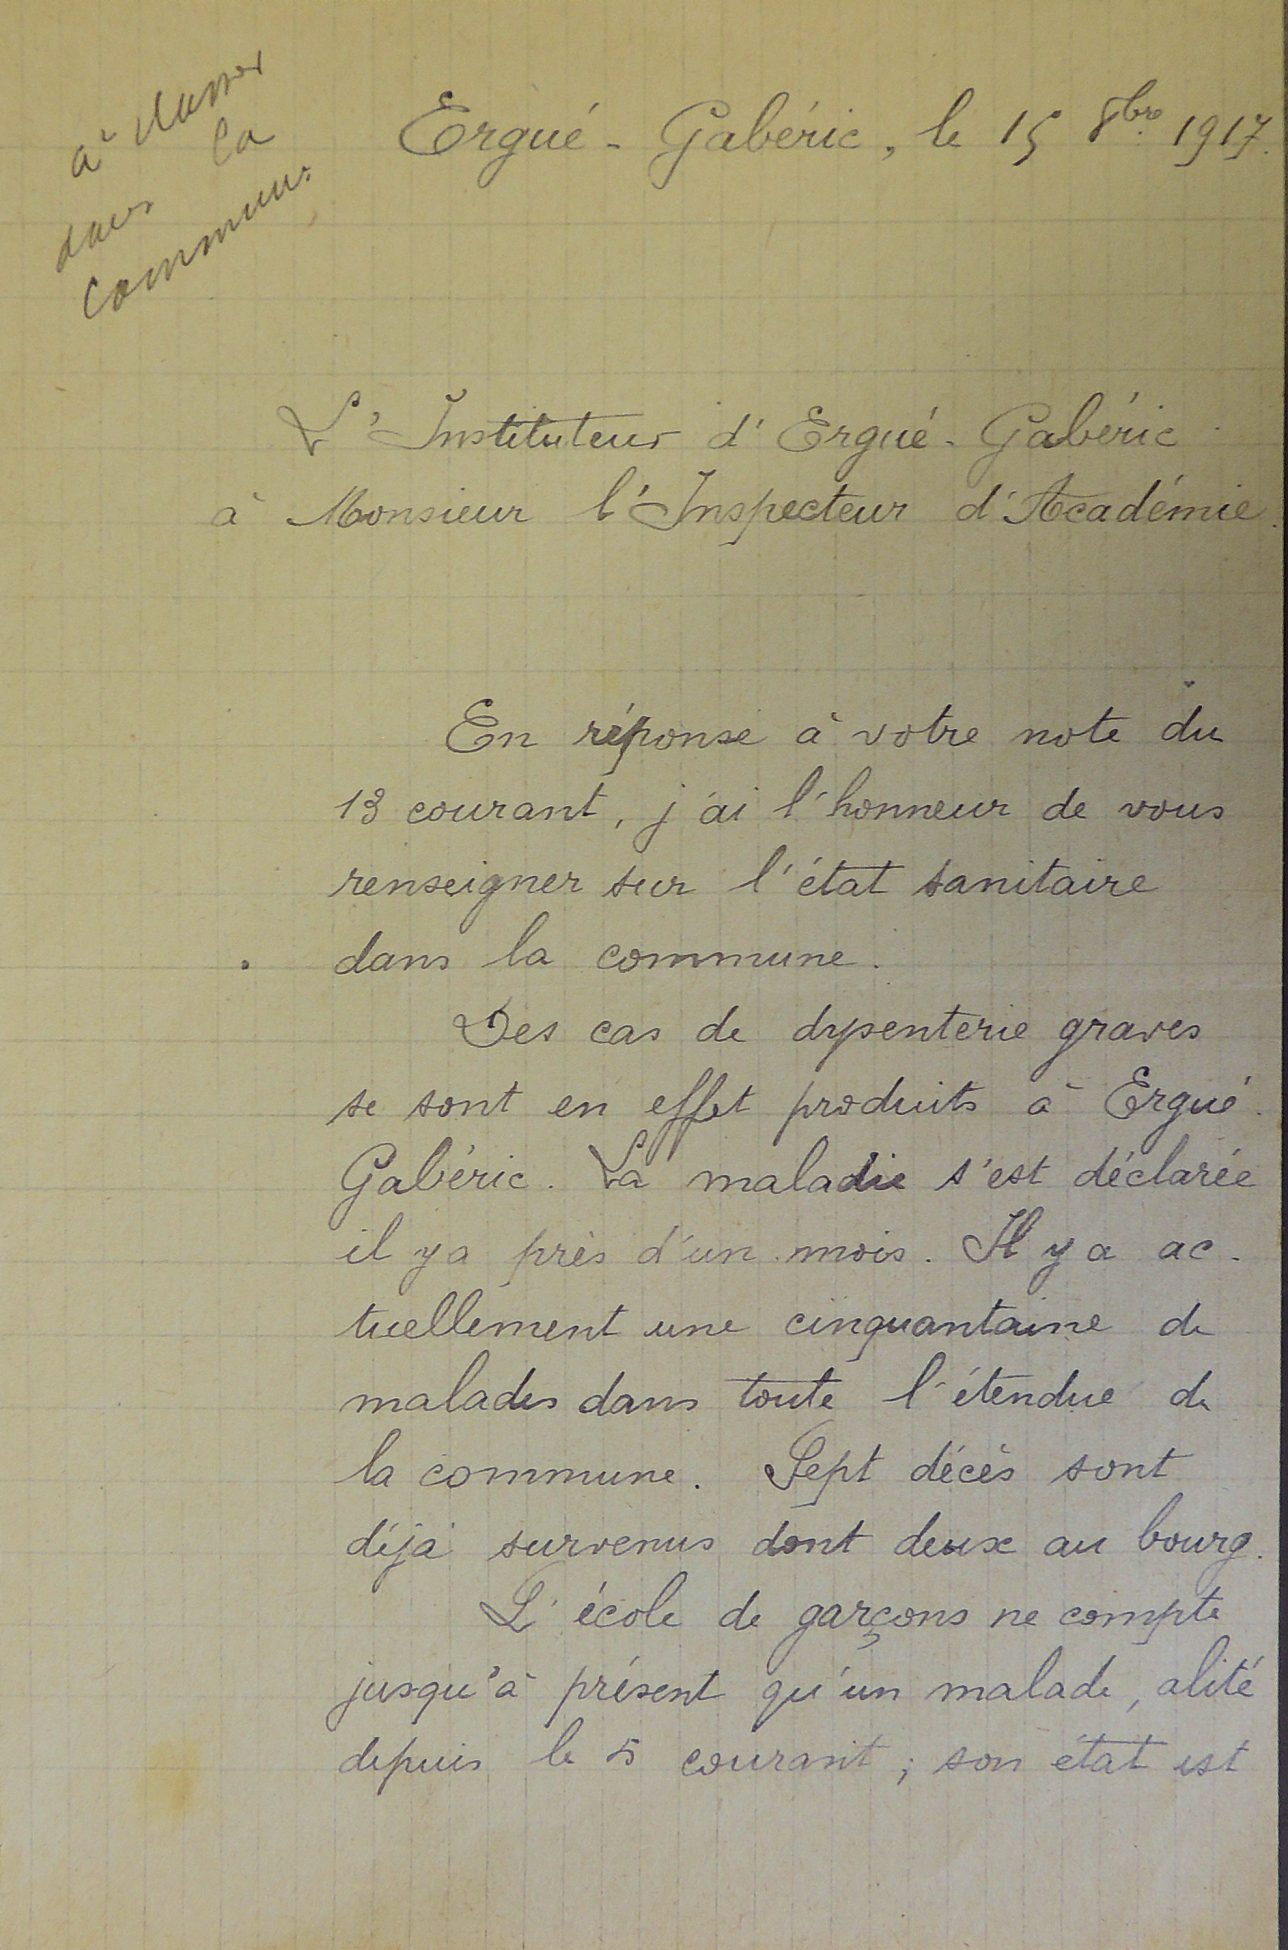 à classer
dans la
commune
Ergué-Gabéric, le 15 8bre 1917.
L'Instituteur d'Ergué-Gabéric
à Monsieur l'Inspecteur d'Académie.
En réponse à votre note du
13 courant, j'ai l'honneur de vous
renseigner sur l'état sanitaire
dans la commune.
Des cas de dysenterie graves
se sont en effet produits à Ergué-
Gabéric. La maladie s'est déclarée
il y a près d'un mois. Il y a ac-
tuellement une cinquantaine de
malades dans toute l'étendue de
la commune. Sept décès sont
déjà survenus dont deux au bourg.
L'école de garçons ne compte
jusqu'à présent qu'un malade, alité
depuis le 5 courant ; son état est